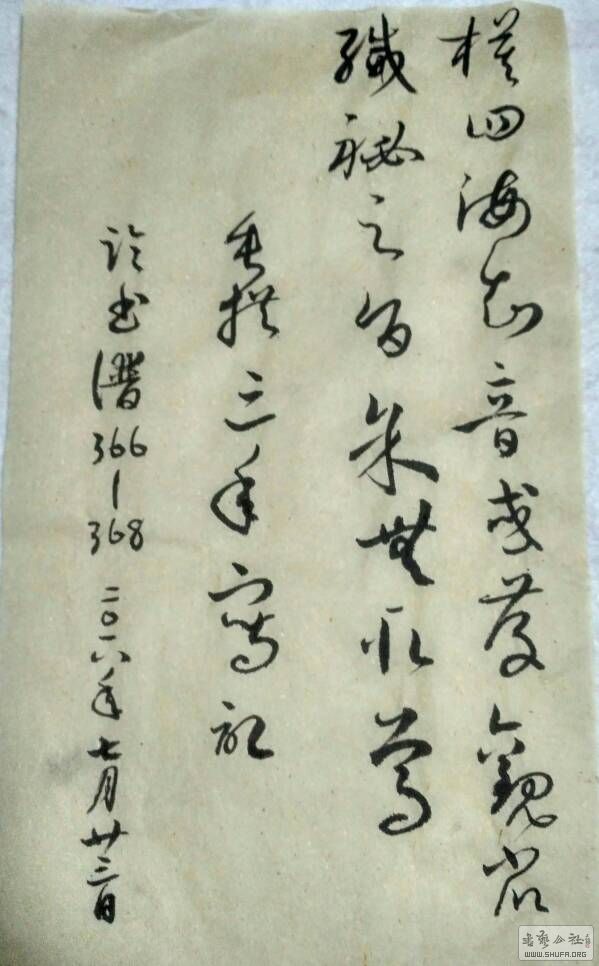 模四海知音或存觀省
緘秘之旨余無取焉
垂拱三年寫記
临书譜366—368 二〇一六年七月廿三日
書藝公社
WWW.SHUFA.ORG